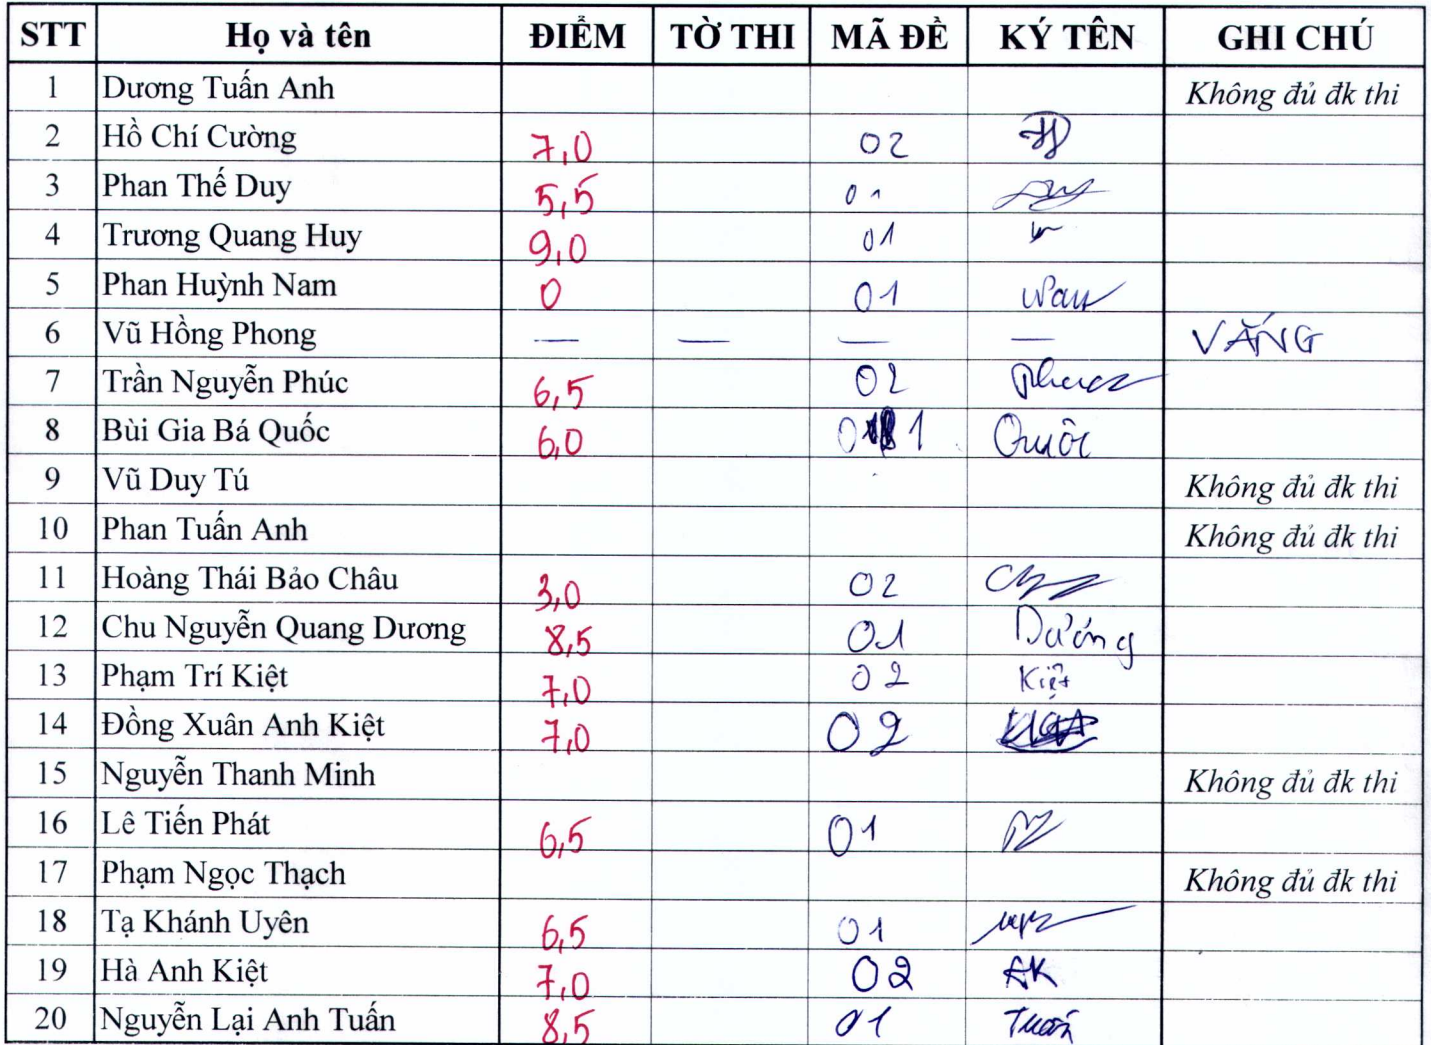 STT Họ và tên ĐIỂM TỜ THI MÃ ĐỀ KÝ TÊN GHI CHÚ
1 Dương Tuấn Anh Không đủ đk thi
2 Hồ Chí Cường 7,0 02
3 Phan Thế Duy 5,5 01
4 Trương Quang Huy 9,0 01
5 Phan Huỳnh Nam 0 01
6 Vũ Hồng Phong — — — — VẮNG
7 Trần Nguyễn Phúc 6,5 02
8 Bùi Gia Bá Quốc 6,0 01 Quốc
9 Vũ Duy Tú Không đủ đk thi
10 Phan Tuấn Anh Không đủ đk thi
11 Hoàng Thái Bảo Châu 3,0 02
12 Chu Nguyễn Quang Dương 8,5 01 Dương
13 Phạm Trí Kiệt 7,0 02 Kiệt
14 Đồng Xuân Anh Kiệt 7,0 02
15 Nguyễn Thanh Minh Không đủ đk thi
16 Lê Tiến Phát 6,5 01
17 Phạm Ngọc Thạch Không đủ đk thi
18 Tạ Khánh Uyên 6,5 01
19 Hà Anh Kiệt 7,0 02 AK
20 Nguyễn Lại Anh Tuấn 8,5 01 Tuấn